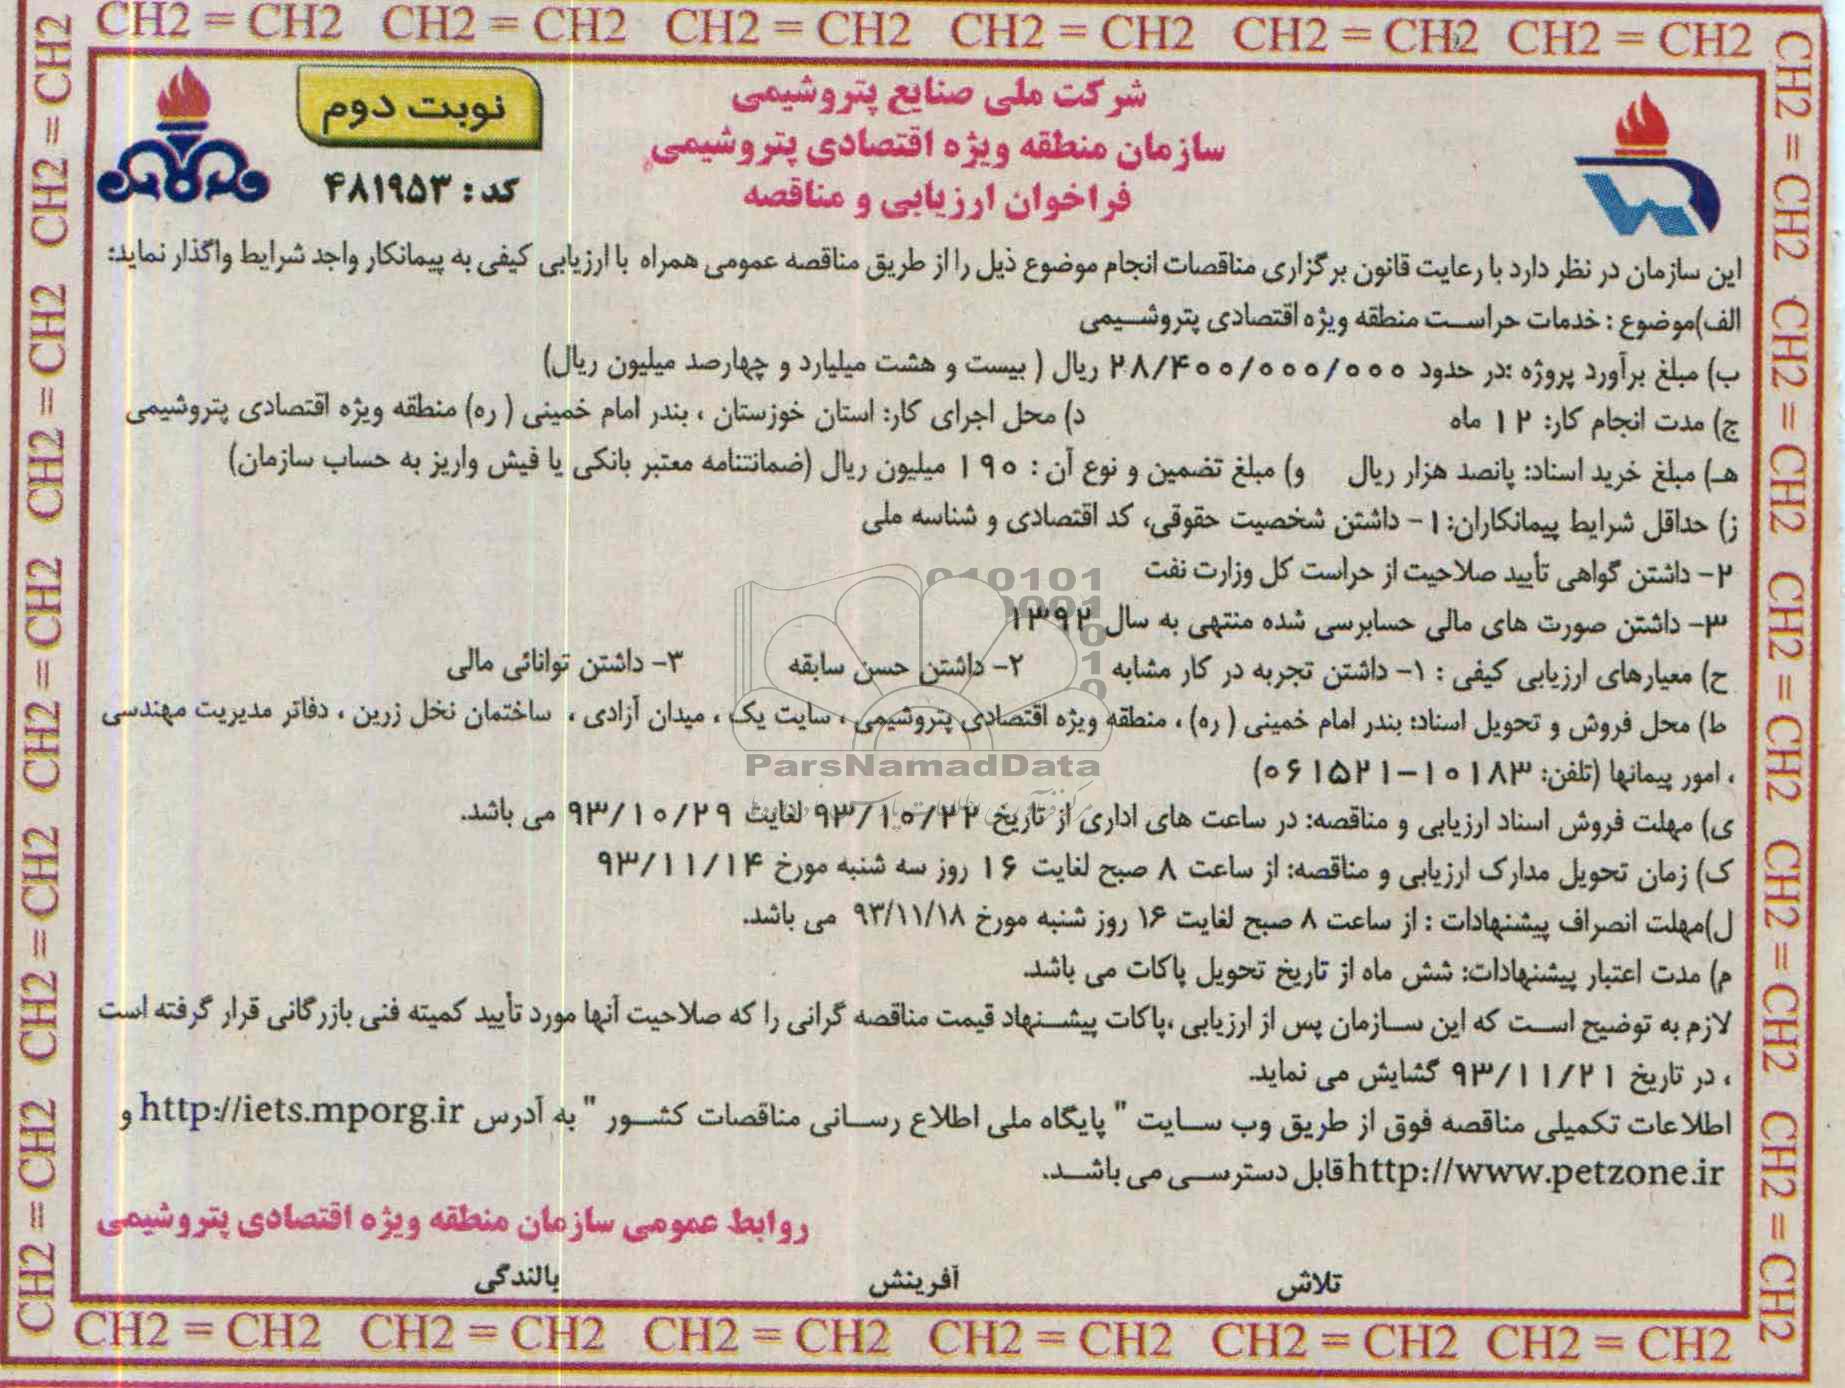 CH2 = CH2 CH2 = CH2 CH2 = CH2 CH2 = CH2 CH2 = CH2 CH2 = CH2
شرکت ملی صنایع پتروشیمی
سازمان منطقه ویژه اقتصادی پتروشیمی
فراخوان ارزیابی و مناقصه
نوبت دوم
کد: ۴۸۱۹۵۳
این سازمان در نظر دارد با رعایت قانون برگزاری مناقصات انجام موضوع ذیل را از طریق مناقصه عمومی همراه با ارزیابی کیفی به پیمانکار واجد شرایط واگذار نماید:
الف)موضوع : خدمات حراست منطقه ویژه اقتصادی پتروشیمی
ب) مبلغ برآورد پروژه :در حدود ۲۸/۴۰۰/۰۰۰/۰۰۰ ریال ( بیست و هشت میلیارد و چهارصد میلیون ریال)
ج) مدت انجام کار: ۱۲ ماه د) محل اجرای کار: استان خوزستان ، بندر امام خمینی ( ره) منطقه ویژه اقتصادی پتروشیمی
هـ) مبلغ خرید اسناد: پانصد هزار ریال و) مبلغ تضمین و نوع آن : ۱۹۰ میلیون ریال (ضمانتنامه معتبر بانکی یا فیش واریز به حساب سازمان)
ز) حداقل شرایط پیمانکاران: ۱- داشتن شخصیت حقوقی، کد اقتصادی و شناسه ملی
۲- داشتن گواهی تأیید صلاحیت از حراست کل وزارت نفت
۳- داشتن صورت های مالی حسابرسی شده منتهی به سال ۱۳۹۲
ح) معیارهای ارزیابی کیفی : ۱- داشتن تجربه در کار مشابه ۲- داشتن حسن سابقه ۳- داشتن توانائی مالی
ط) محل فروش و تحویل اسناد: بندر امام خمینی ( ره) ، منطقه ویژه اقتصادی پتروشیمی ، سایت یک ، میدان آزادی ، ساختمان نخل زرین ، دفاتر مدیریت مهندسی
، امور پیمانها (تلفن: ۱۰۱۸۳-۰۶۱۵۲۱)
ParsNamadData
ی) مهلت فروش اسناد ارزیابی و مناقصه: در ساعت های اداری از تاریخ ۹۳/۱۰/۲۲ لغایت ۹۳/۱۰/۲۹ می باشد.
ک) زمان تحویل مدارک ارزیابی و مناقصه: از ساعت ۸ صبح لغایت ۱۶ روز سه شنبه مورخ ۹۳/۱۱/۱۴
ل)مهلت انصراف پیشنهادات : از ساعت ۸ صبح لغایت ۱۶ روز شنبه مورخ ۹۳/۱۱/۱۸ می باشد.
م) مدت اعتبار پیشنهادات: شش ماه از تاریخ تحویل پاکات می باشد.
لازم به توضیح است که این سازمان پس از ارزیابی ،پاکات پیشنهاد قیمت مناقصه گرانی را که صلاحیت آنها مورد تأیید کمیته فنی بازرگانی قرار گرفته است
، در تاریخ ۹۳/۱۱/۲۱ گشایش می نماید.
اطلاعات تکمیلی مناقصه فوق از طریق وب سایت " پایگاه ملی اطلاع رسانی مناقصات کشور " به آدرس http://iets.mporg.ir و
http://www.petzone.ir قابل دسترسی می باشد.
روابط عمومی سازمان منطقه ویژه اقتصادی پتروشیمی
تلاش آفرینش بالندگی
CH2 = CH2 CH2 = CH2 CH2 = CH2 CH2 = CH2 CH2 = CH2 CH2 = CH2
CH2 = CH2 CH2 = CH2 CH2 = CH2 CH2 = CH2 CH2 = CH2
CH2 = CH2 CH2 = CH2 CH2 = CH2 CH2 = CH2 CH2 = CH2